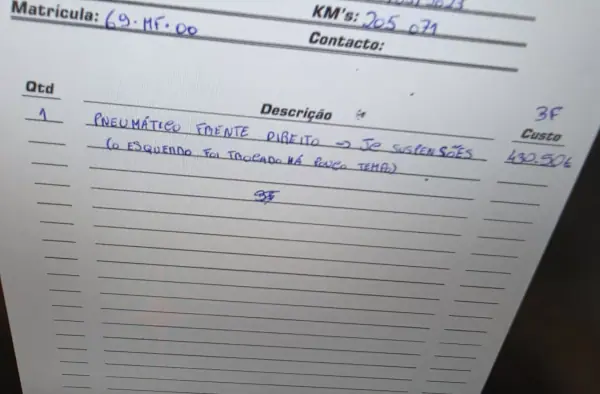 Matrícula: 69·MF·00
KM's: 205 071
Contacto:
3F
Qtd Descrição Custo
1 PNEUMÁTICO FRENTE DIREITO → JC SUSPENSÕES 430.50€
(O ESQUERDO FOI TROCADO HÁ POUCO TEMPO)